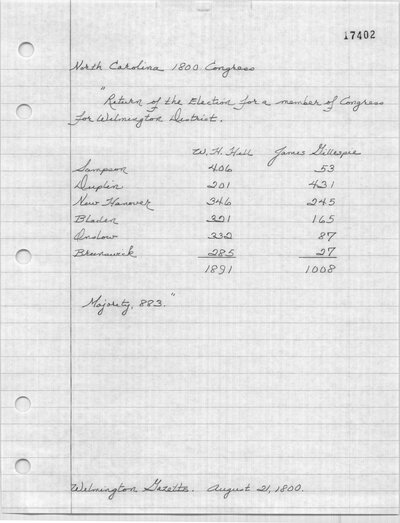 17402
North Carolina 1800 Congress
"Return of the Election for a member of Congress
for Wilmington District.
W. H. Hill James Gillespie
Sampson 406 53
Duplin 201 431
New Hanover 346 245
Bladen 321 165
Onslow 332 87
Brunswick 285 27
1891 1008
Majority, 883."
Wilmington Gazette. August 21, 1800.